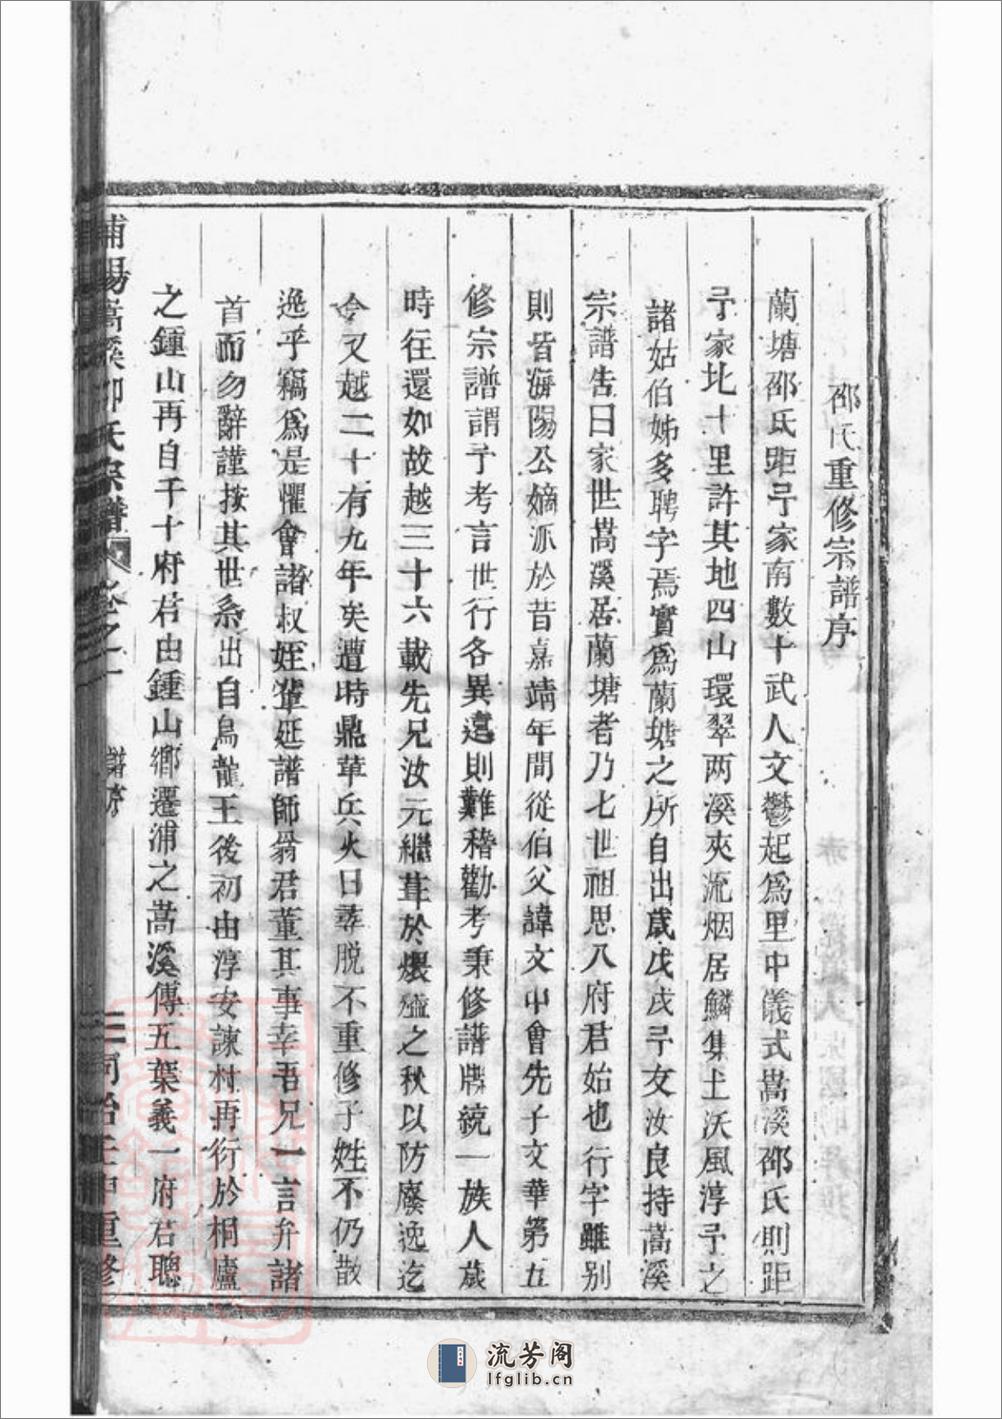 邵氏重修宗譜序
蘭塘邵氏距予家南數十武人文鬱起爲里中儀式嵩溪邵氏則距
予家北十里許其地四山環翠两溪夾流烟居鱗集土沃風淳予之
諸姑伯姊多聘字焉實爲蘭塘之所自出歲戊戌予友汝良持嵩溪
宗譜告曰家世嵩溪居蘭塘者乃七世祖思八府君始也行字雖别
則皆海陽公嫡派於昔嘉靖年間從伯父諱文中會先子文華第五
修宗譜謂予考言世行各異遠則難稽勸考秉修譜牒統一族人歲
時往還如故越三十六載先兄汝元繼葺於煨燼之秋以防廢逸迄
今又越二十有九年矣遭時鼎革兵火日尋脱不重修子姓不仍散
逸乎竊爲是懼會諸叔姪輩延譜師翁君董其事幸吾兄一言弁諸
首而勿辭謹按其世系出自烏龍王後初由淳安諫村再衍於桐廬
之鍾山再自千十府君由鍾山鄉遷浦之嵩溪傳五葉義一府君聰
浦陽嵩溪邵氏宗譜 卷之一 譜序 同治壬申重修
流芳阁
lfglib.com